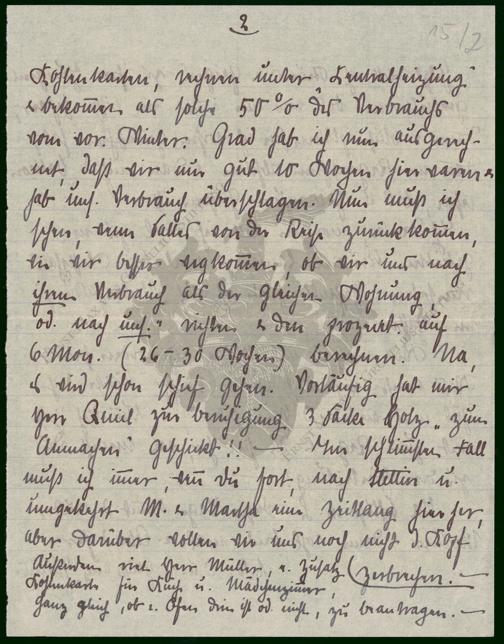 2
15/2
Kohlenkarten, rechnen unter „Zentralheizung"
& bekommen als solche 50% des Verbrauchs
vom vor. Winter. Grad hab ich nun ausgerech-
net, daß wir nur gut 10 Wochen hier waren &
hab uns. Verbrauch überschlagen. Nun muß ich
sehen, wenn Falks von der Reise zurückkommen,
wie wir besser wegkommen, ob wir uns nach
ihrem Verbrauch als der gleichen Wohnung,
od. nach uns." richten & den prozent. auf
6 Mon. (26-30 Wochen) berechnen. Na,
es wird schon schief gehen. Vorläufig hat mir
Herr Quiel zur Beruhigung 3 Säcke Holz „zum
Anmachen" geschickt!! — Im schlimmsten Fall
muß ich immer, wenn Du fort, nach Stettin u.
umgekehrt M. & Martha eine Zeitlang hierher,
aber darüber wollen wir uns noch nicht d. Kopf
zerbrechen. —
Außerdem riet Herr Müller, e. Zusatz
Kohlenkarte für Küche u. Mädchenzimmer,
ganz gleich, ob e. Ofen drin ist od. nicht, zu beantragen. —